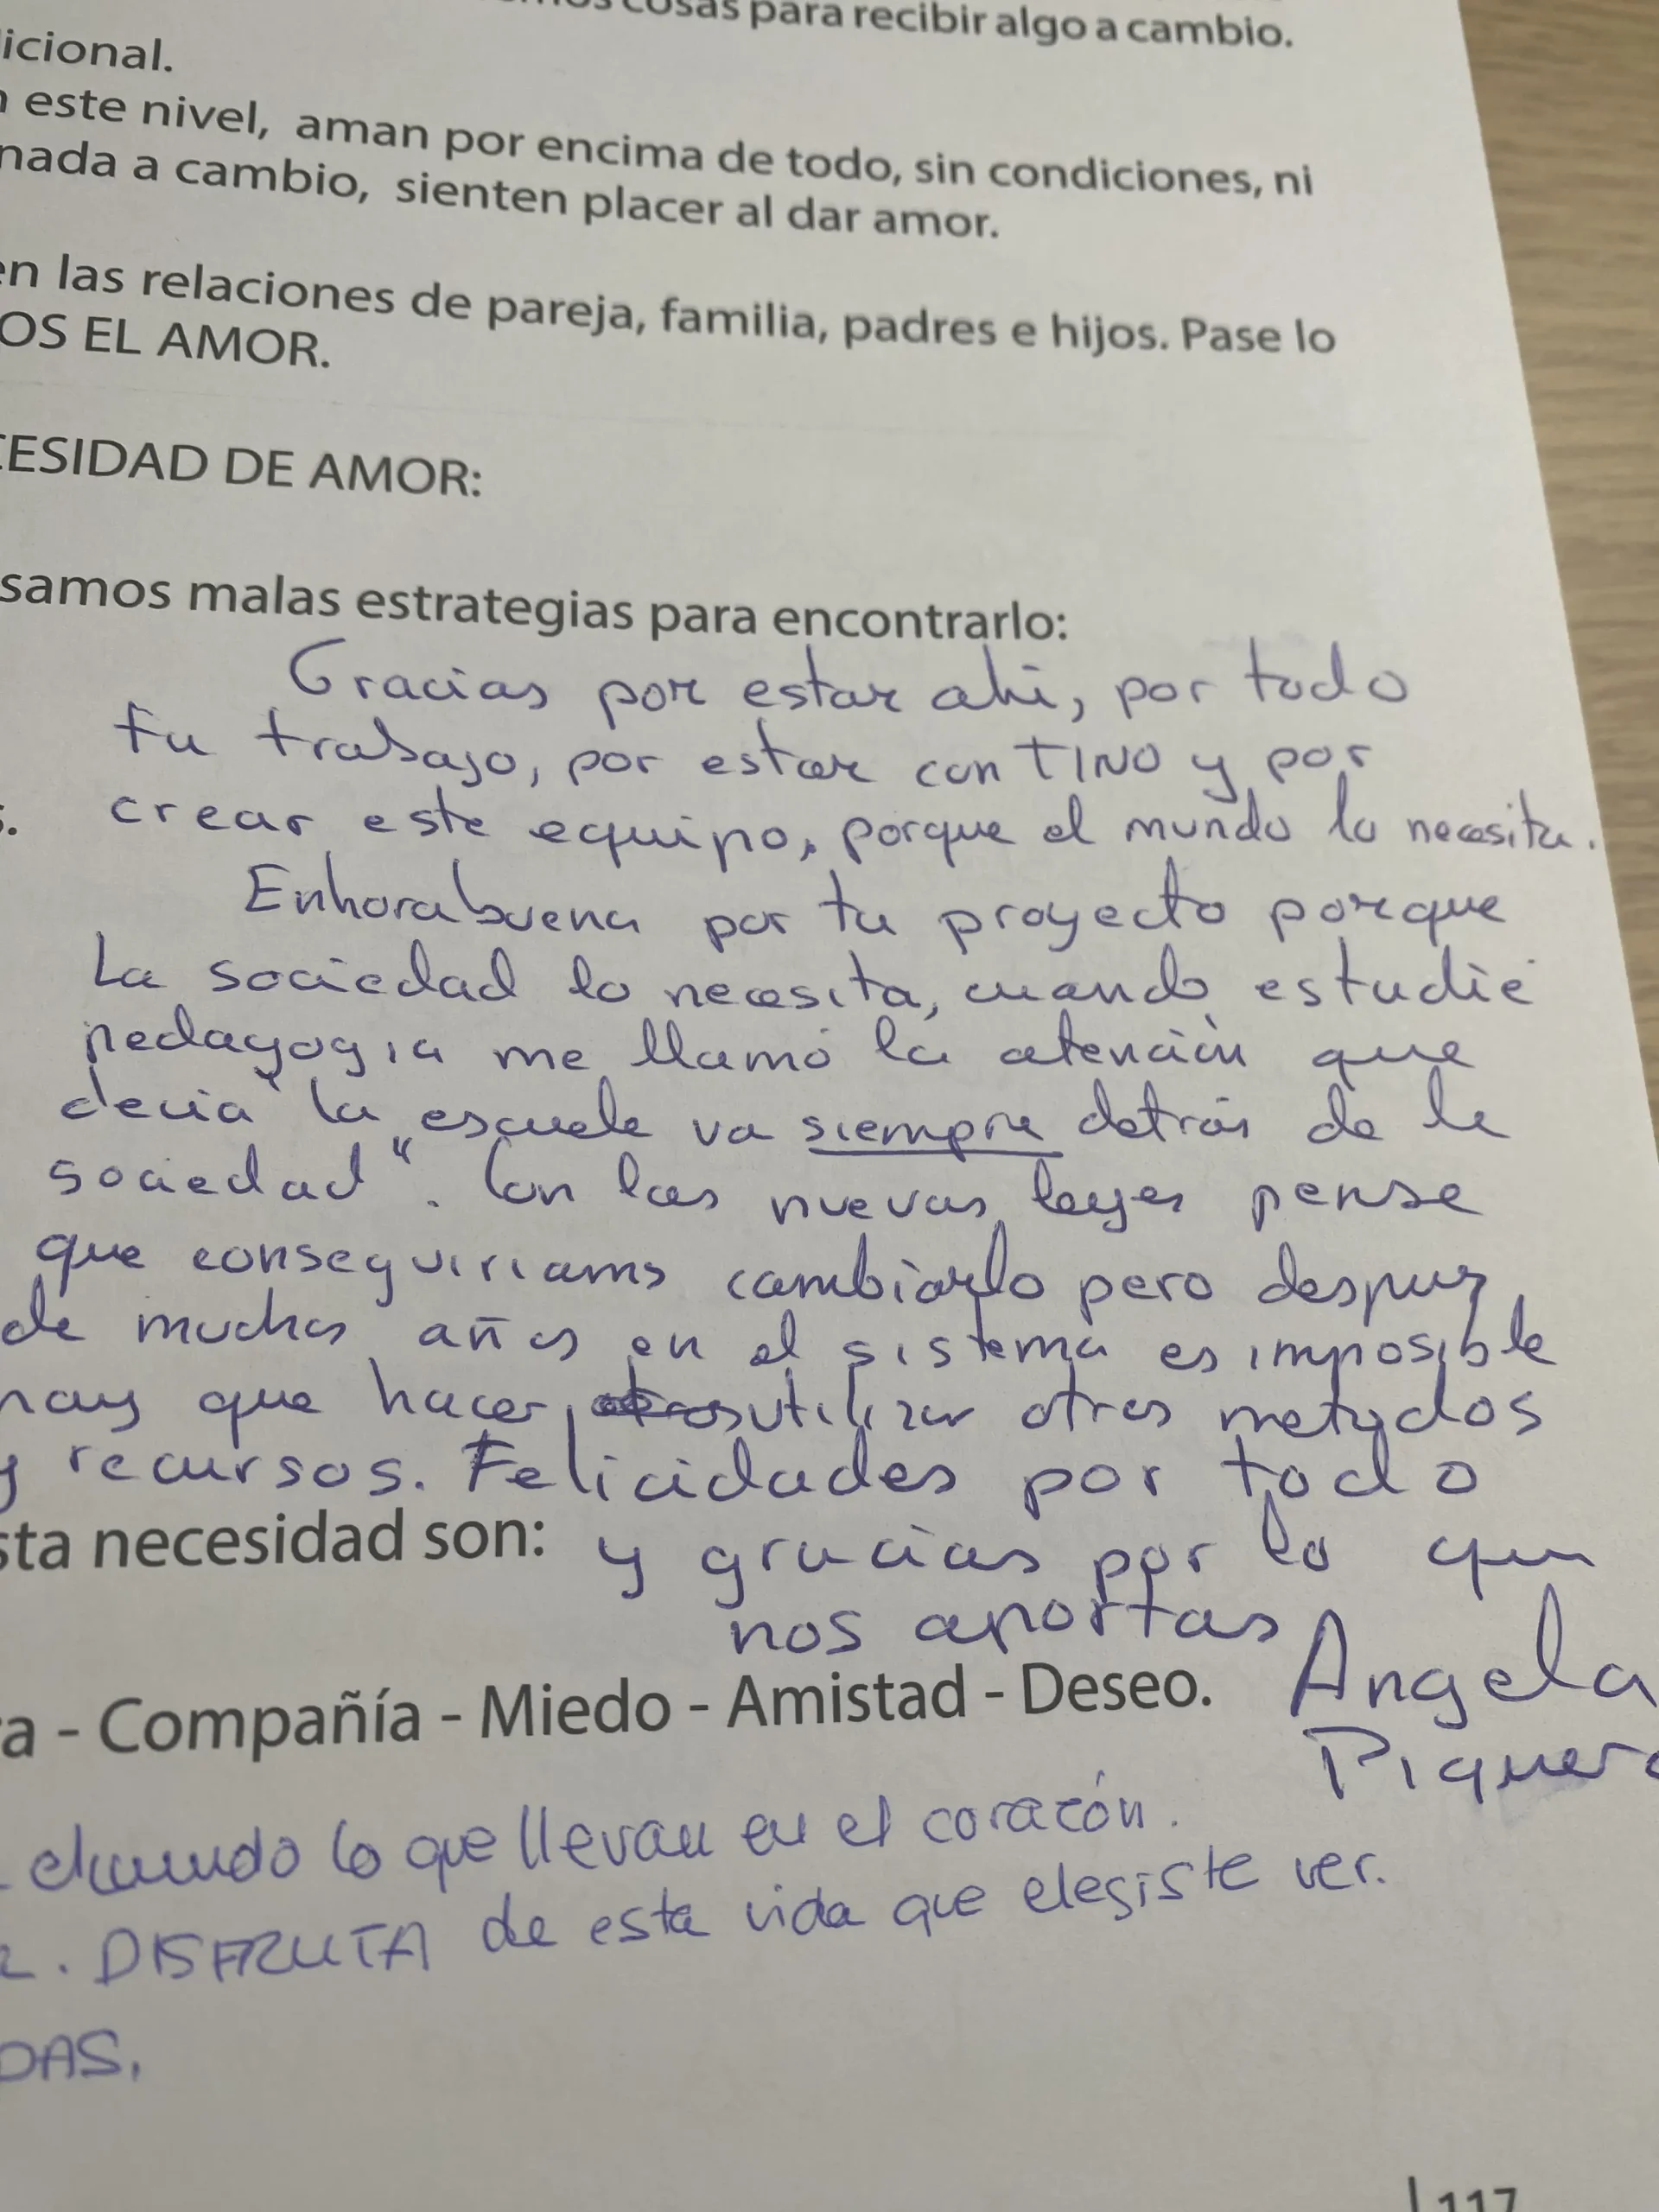 cosas para recibir algo a cambio.
icional.
este nivel, aman por encima de todo, sin condiciones, ni
nada a cambio, sienten placer al dar amor.
en las relaciones de pareja, familia, padres e hijos. Pase lo
OS EL AMOR.
ESIDAD DE AMOR:
samos malas estrategias para encontrarlo:
Gracias por estar ahi, por todo
tu trabajo, por estar con TINO y por
s. crear este equipo, porque el mundo lo necesita.
Enhorabuena por tu proyecto porque
La sociedad lo necesita, cuando estudié
pedagogia me llamó la atención que
decia "la escuela va siempre detrás de la
sociedad". Con las nuevas leyes pense
que conseguiriamos cambiarlo pero despues
de muchos años en el sistema es imposible
hay que hacer, utilizar otros metodos
y recursos. Felicidades por todo
sta necesidad son: y gracias por lo que
nos aportas
Angela
a - Compañía - Miedo - Amistad - Deseo.
Piquer
lo que llevan en el corazón.
DISFRUTA de esta vida que elegiste ver.
DAS.
117